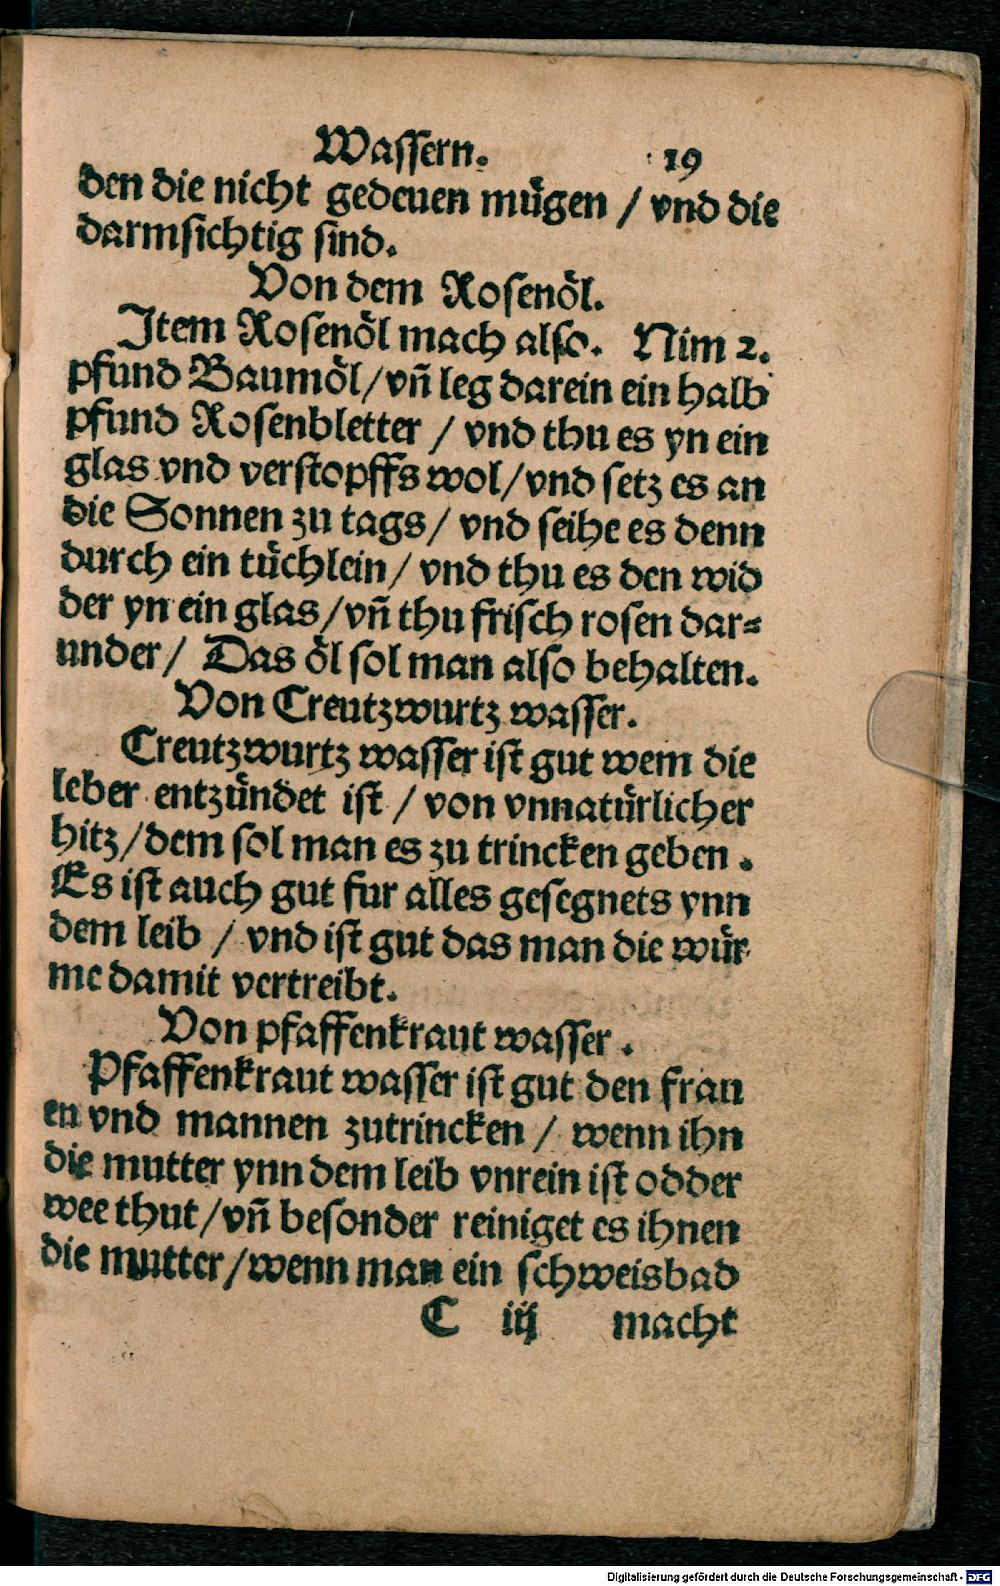 Wassern. 19
den die nicht gedeuen mügen / vnd die
darmsichtig sind.
Von dem Rosenöl.
Item Rosenöl mach also. Nim 2.
pfund Baumöl / vñ leg darein ein halb
pfund Rosenbletter / vnd thu es yn ein
glas vnd verstopffs wol / vnd setz es an
die Sonnen zu tags / vnd seihe es denn
durch ein tüchlein / vnd thu es den wid
der yn ein glas / vñ thu frisch rosen dar⸗
under / Das öl sol man also behalten.
Von Creutzwurtz wasser.
Creutzwurtz wasser ist gut wem die
leber entzündet ist / von vnnatürlicher
hitz / dem sol man es zu trincken geben.
Es ist auch gut fur alles gesegnets ynn
dem leib / vnd ist gut das man die wür
me damit vertreibt.
Von pfaffenkraut wasser.
Pfaffenkraut wasser ist gut den frau
en vnd mannen zutrincken / wenn ihn
die mutter ynn dem leib vnrein ist odder
wee thut / vñ besonder reiniget es ihnen
die mutter / wenn man ein schweisbad
C iij macht
Digitalisierung gefördert durch die Deutsche Forschungsgemeinschaft - DFG